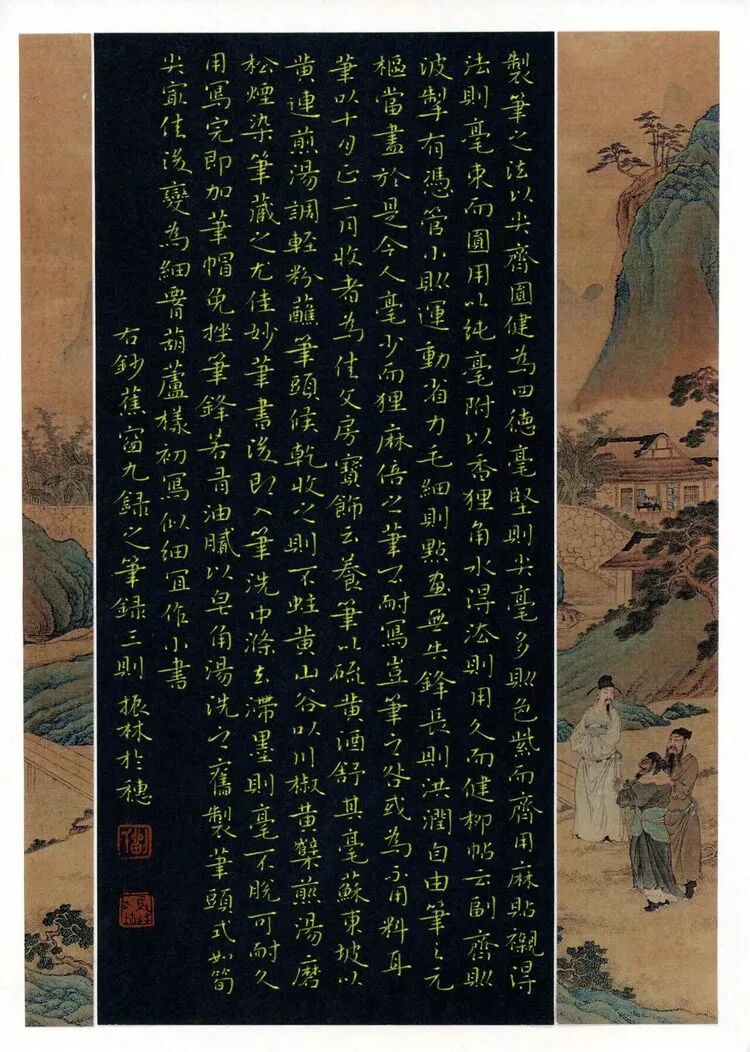 製筆之法以尖齊圓健為四德毫堅則尖毫多則色紫而齊用麻貼襯得
法則毫束而圓用以純毫附以香狸角水得法則用久而健柳帖云副齊則
波掣有憑管小則運動省力毛細則點畫無失鋒長則洪潤自由筆之元
樞當盡於是今人毫少而狸麻倍之筆不耐寫豈筆之咎或為不用料耳
筆以十月正二月收者為佳文房寶飾云養筆以硫黃酒舒其毫蘇東坡以
黃連煎湯調輕粉蘸筆頭候乾收之則不蛀黃山谷以川椒黃蘗煎湯磨
松煙染筆藏之尤佳妙筆書後即入筆洗中滌去滯墨則毫不脫可耐久
用寫完即加筆帽免挫筆鋒若有油膩以皂角湯洗之舊製筆頭式如筍
尖最佳後變為細腰葫蘆樣初寫似細宜作小書
右鈔蕉窗九錄之筆錄三則 振林於穗